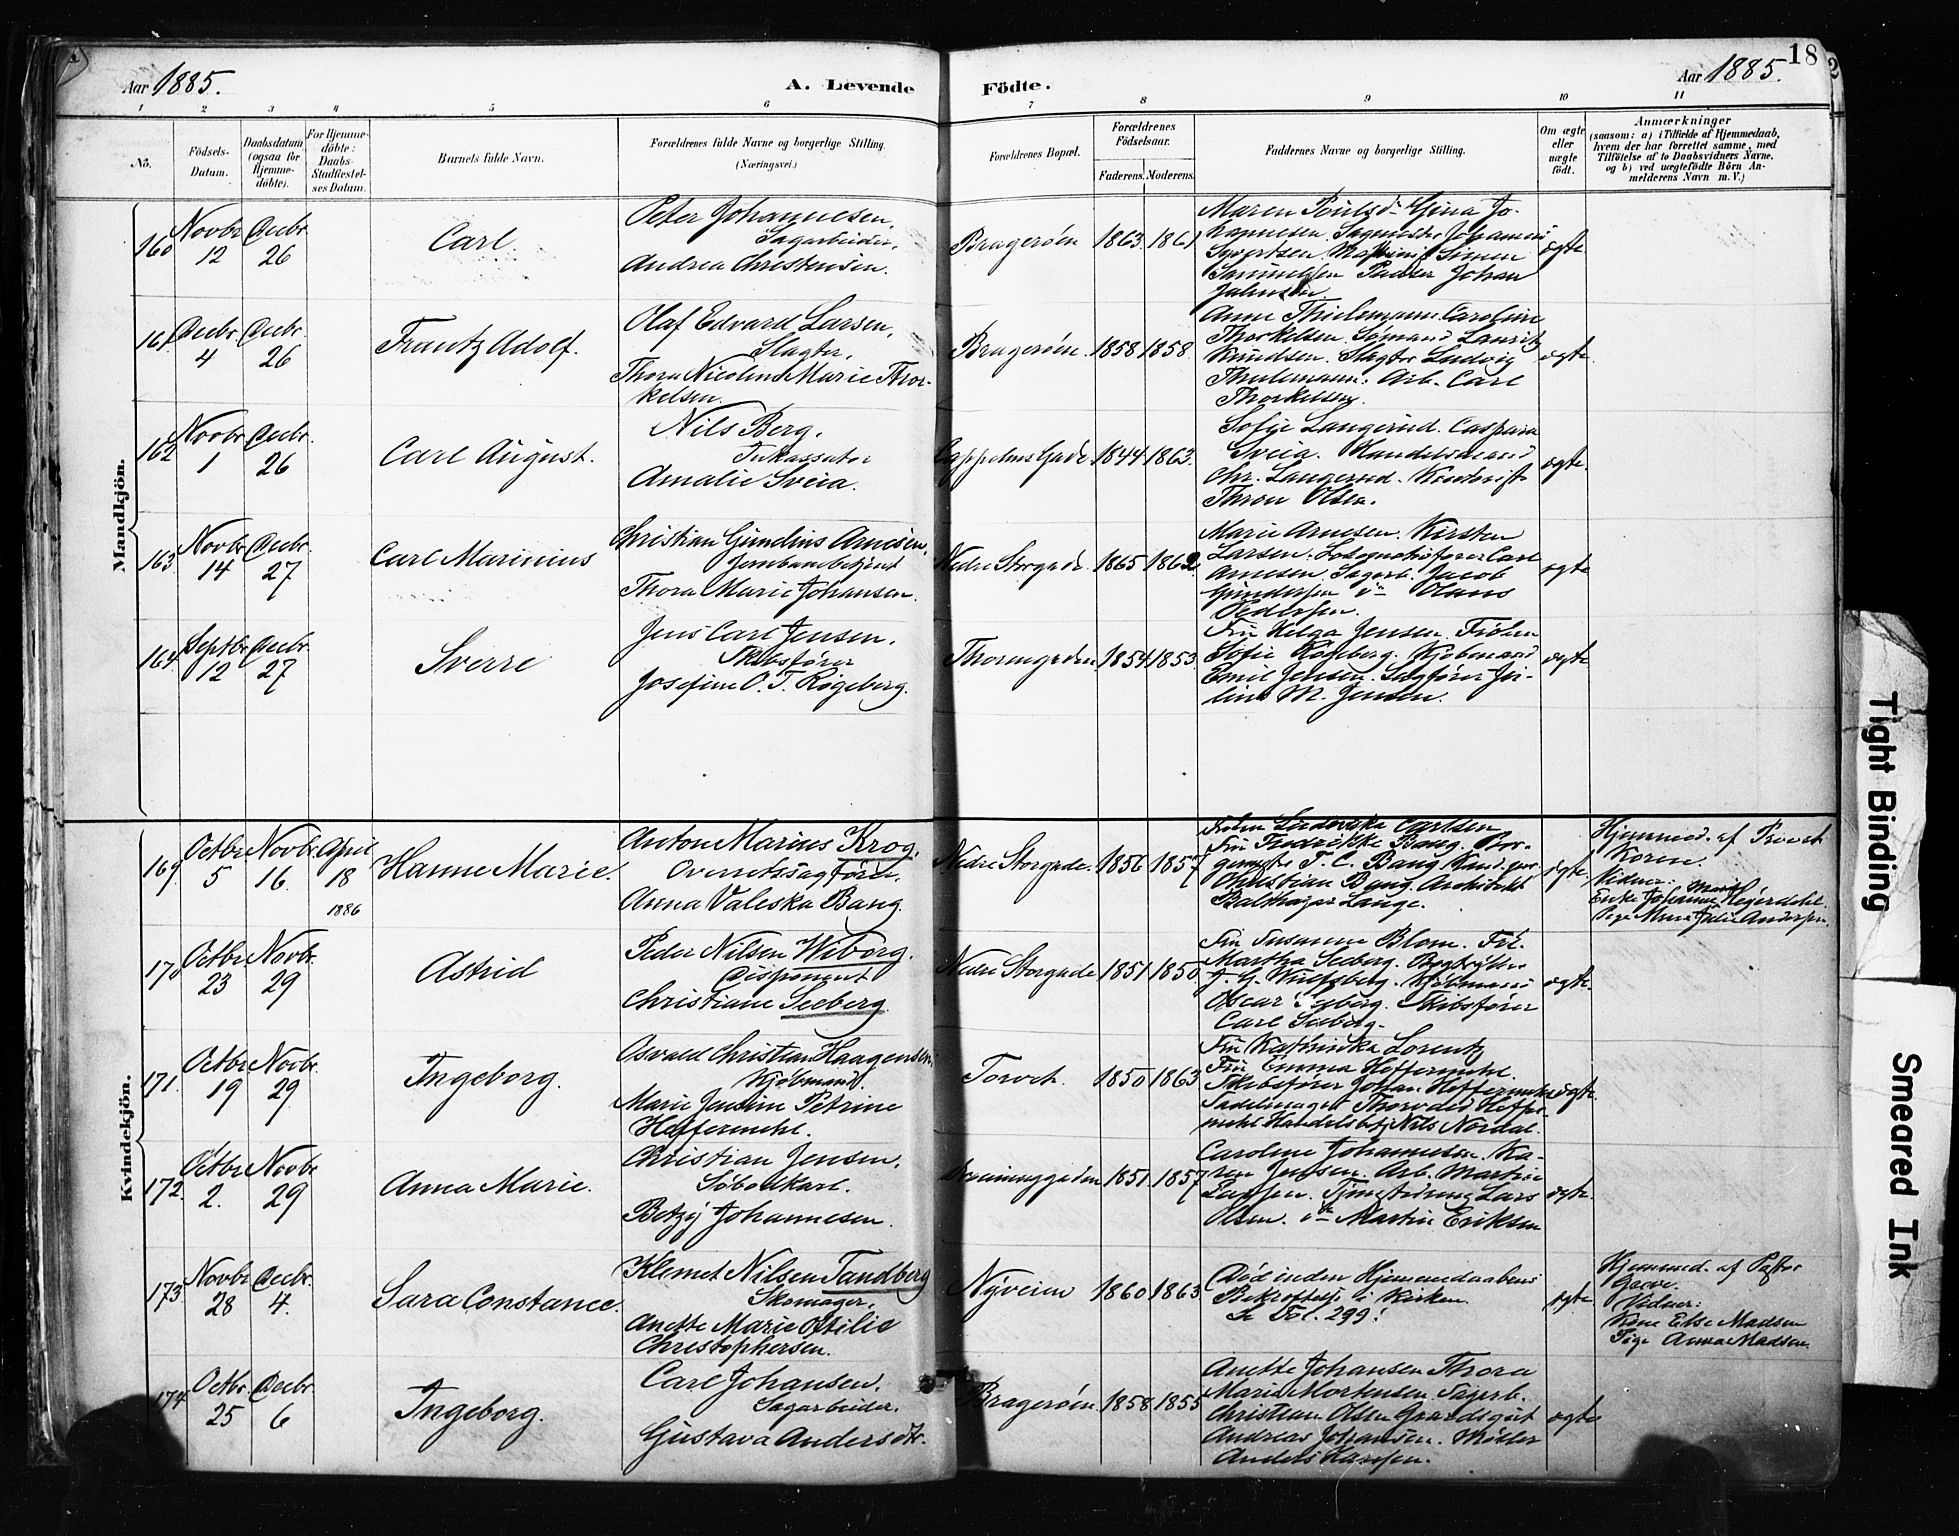 Aar 1885.
A. Levende Födte.
Aar 1885.
18
1 2 3 4 5 6 7 8 9 10 11
No.
Födsels-
Datum.
Daabsdatum
(ogsaa for
Hjemme-
döbte).
For Hjemme-
döbte:
Daabs-
Stadfæstel-
ses Datum.
Barnets fulde Navn.
Forældrenes fulde Navne og borgerlige Stilling.
(Næringsvei.)
Forældrenes Bopæl.
Forældrenes
Födselsaar.
Faderens. Moderens.
Faddernes Navne og borgerlige Stilling.
Om ægte
eller
uægte
födt.
Anmærkninger
(saasom: a) i Tilfælde af Hjemmedaab,
hvem der har forrettet samme, med
Tilföielse af to Daabsvidners Navne,
og b) ved uægtefödte Börn An-
melderens Navn m. V.)
Mandkjön.
160
Novbr
12
Decbr.
26
Carl.
Peter Johannesen,
Sagarbeider,
Andrea Christensen.
Bragerøen
1863.
1861
Maren Poulsd. Gina Jo-
hannesen. Sagmester Johannes
Syvertsen. Simen
Samuelsen Johan
ægte
161
Decbr.
4
Decbr.
26
Frantz Adolf.
Olaf Edvard Larsen,
Slagter.
Thora Nicoline Marie Thor-
kelsen.
Bragerøen
1858
1858.
Anne Thielemann. Caroline
Thorkelsen. Sømand Lauritz
Knudsen. Slagter Ludvig
Thielemann. Arb. Carl
Thorkelsen.
ægte.
162
Novbr
1
Decbr.
26
Carl August.
Nils Berg.
Inkassator
Amalie Sveia.
Cappelens Gade.
1844
1863.
Sofie Langerud. Caspara
Sveia. Handelsmand
Chr. Langerud.
Thron Olsen.
ægte.
163
Novbr
14
Decbr.
27
Carl Marinius
Christian Gundius Arnesen,
Jernbanebetjent
Thora Marie Johansen.
Nedre Storgade.
1865
1862.
Marie Arnesen. Kirsten
Larsen. Carl
Arnesen. Sagarb. Jacob
Gundersen Olaus
Pedersen.
ægte
164
Septbr
12
Decbr.
27
Sverre
Jens Carl Jensen.
Skibsfører
Josefine O. T. Røgeberg.
Thorengaden
1854
1853.
Fru Helga Jensen. Frøken
Sofie Røgeberg. Kjøbmand
Emil Jensen. Sagfører Ju-
lius M. Jensen.
ægte
Kvindekjön.
169
Octbr
5
Novbr.
16.
April
18
1886
Hanne Marie.
Anton Marius Krog.
Overretssagfører.
Anna Valeska Bang.
Nedre Storgade.
1856
1857
Frøken Ludovica Carlsen
Fru Fredrikke Bang. Bor-
germester T. C. Bang. Kand. jur.
Christian Bang. Architekt
Balthazar Lange.
ægte.
Hjemmed. af Provst
Koren.
Vidner:
Enke Johanne Marie Heyerdahl.
Pige Andersen.
170
Octbr.
23
Novbr.
29
Astrid
Peder Nilsen Wiborg.
Disponent
Christiane Seeberg
Nedre Storgade
1851
1850
Fru Susanne Blom. Frk.
Martha Seeberg. Bogtrykker
J. G. Wulfsberg. Kjøbmand
Oscar Seeberg. Skibsfører
Carl Seeberg.
ægte.
171.
Octbr
19
Novbr.
29.
Ingeborg.
Osvald Christian Haagensen,
Kjøbmand.
Marie Jensine Petrine
Høffermehl.
Torvet.
1850
1863
Fru Kathinka Lorentz
Fru Emma Høffermehl.
Skibsfører Johan Høffermehl
Sadelmager Thorvald Høffer-
mehl Handelsbetj Nils Nordal.
ægte.
172.
Octbr
2.
Novbr
29
Anna Marie.
Christian Jensen.
Søbodkarl.
Betzy Johannesen.
Dronninggaden
1851.
1857
Caroline Johannesen. Ka-
ren Jensen. Arb. Martin
Larsen. Lars
Olsen. Martin Eriksen
ægte.
173.
Novbr
28
Decbr.
4.
Sara Constance.
Klemet Nilsen Tandberg
Skomager,
Anette Marie Otilie
Christophersen.
Nyveien
1860
1863
Død inden Hjemmedaabens
Bekræftelse i Kirken.
Se Fol. 299.
ægte
Hjemmed. af Pastor
Greve.
Vidner:
Kone Else Madsen
Pige Anna Madsen
174
Octbr.
25
Decbr.
6
Ingeborg.
Carl Johansen.
Sagarbeider.
Gustava Andersdtr.
Bragerøen.
1858
1855
Anette Johansen Thora
Maria Mortensen. Sagarb.
Christian Olsen Gaardsgut
Andreas Johansen. Møller
Anders Hansen.
ægte
Tight Binding
Smeared Ink